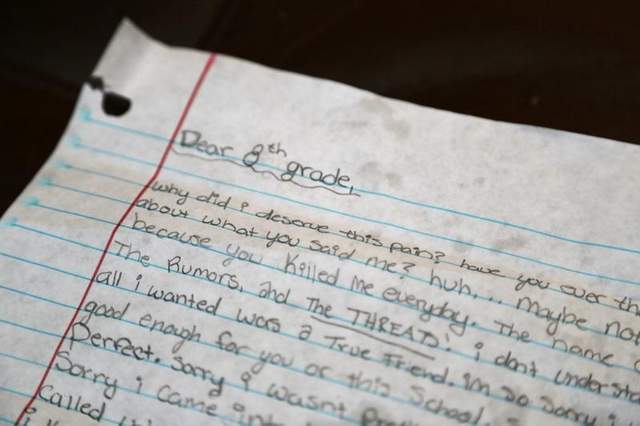 Dear 8th grade,
why did i deserve this pain? have you ever th
about what you said me? huh... maybe not
because you killed me everyday. The name
The Rumors, and The THREAD! i don't understa
all i wanted was a True Friend. im so sorry i
good enough for you or this School.
Perfect. Sorry i wasn't
Sorry i came
Called